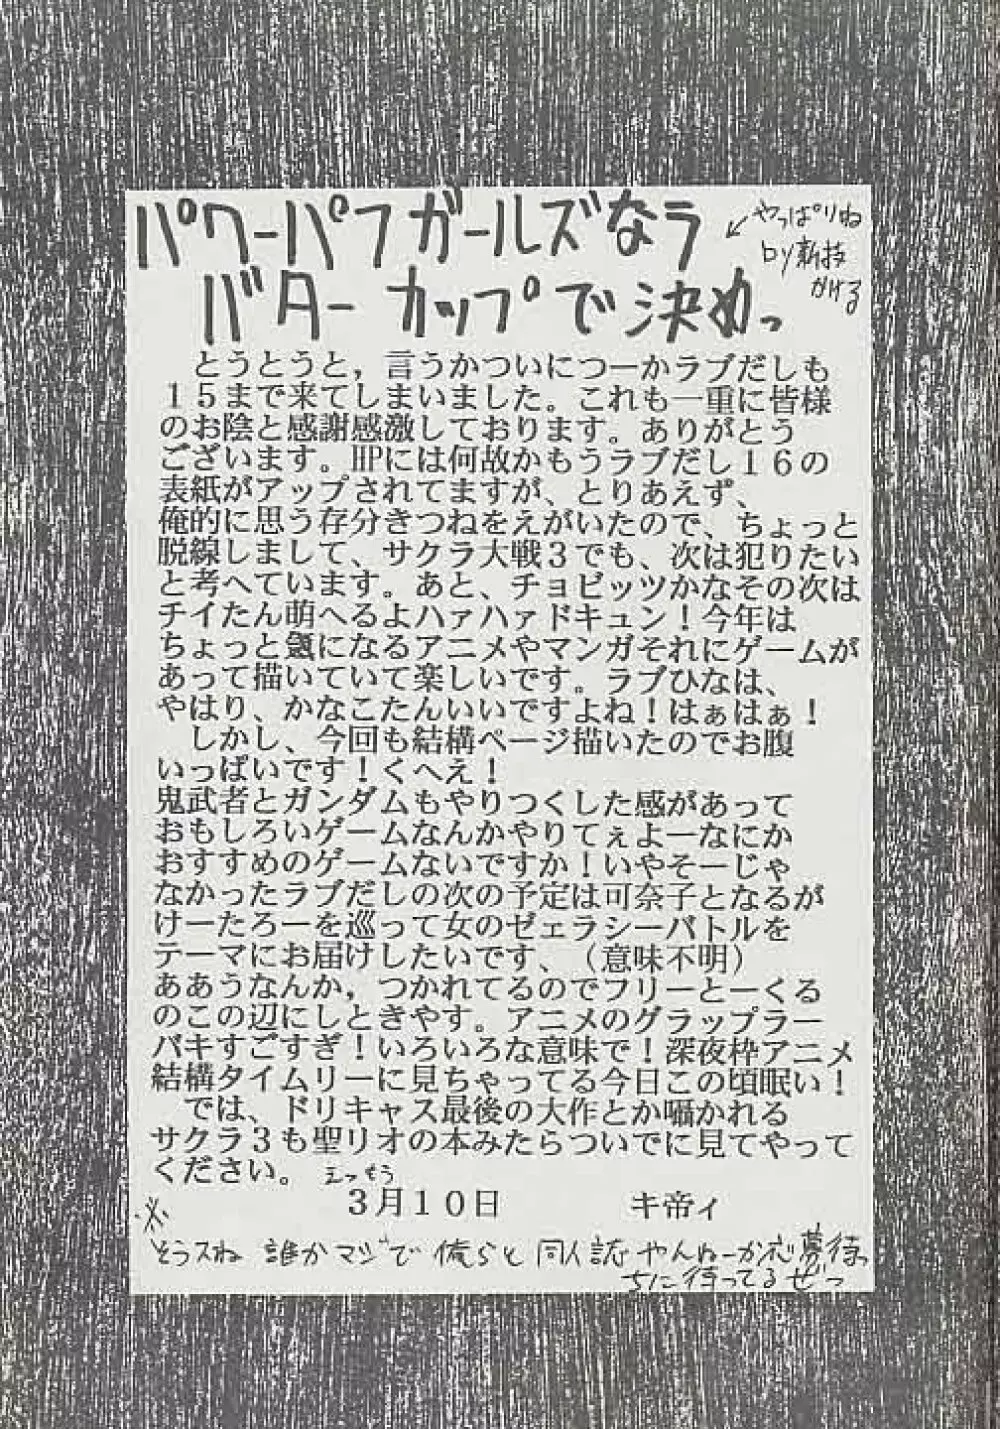 パワーパフガールズなラ
バターカップで決めっ
やっぱりね
かける
とうとうと，言うかついにつーかラブだしも
１５まで来てしまいました。これも一重に皆様
のお陰と感謝感激しております。ありがとう
ございます。HPには何故かもうラブだし１６の
表紙がアップされてますが、とりあえず、
俺的に思う存分きつねをえがいたので、ちょっと
脱線しまして、サクラ大戦３でも、次は犯りたい
と考へています。あと、チョビッツかなその次は
チイたん萌へるよハァハァドキュン！今年は
ちょっと氣になるアニメやマンガそれにゲームが
あって描いていて楽しいです。ラブひなは、
やはり、かなこたんいいですよね！はぁはぁ！
しかし、今回も結構ページ描いたのでお腹
いっぱいです！くへえ！
鬼武者とガンダムもやりつくした感があって
おもしろいゲームなんかやりてぇよーなにか
おすすめのゲームないですか！いやそーじゃ
なかったラブだしの次の予定は可奈子となるが
けーたろーを巡って女のゼェラシーバトルを
テーマにお届けしたいです、（意味不明）
ああうなんか，つかれてるのでフリーとーくる
のこの辺にしときやす。アニメのグラップラー
バキすごすぎ！いろいろな意味で！深夜枠アニメ
結構タイムリーに見ちゃってる今日この頃眠い！
では、ドリキャス最後の大作とか囁かれる
サクラ３も聖リオの本みたらついでに見てやって
ください。えっもう
３月１０日　キ帝ィ
※
そうスね 誰かマジで俺らと同人誌やんねーか応募待っ
ちに待ってるぜっ